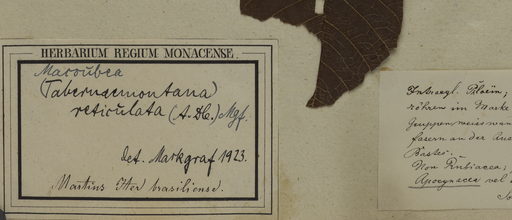 HERBARIUM REGIUM MONACENSE.
Macoubea
(Tabernaemontana)
reticulata (A. DC.) Mgf.
det. Markgraf 1923.
Martius Iter brasiliense.
Intraxyl.
röhren im Marke
Gruppen, weiss
fasern an der
Bastes.
Non Rubiacea;
Apocynacea vel